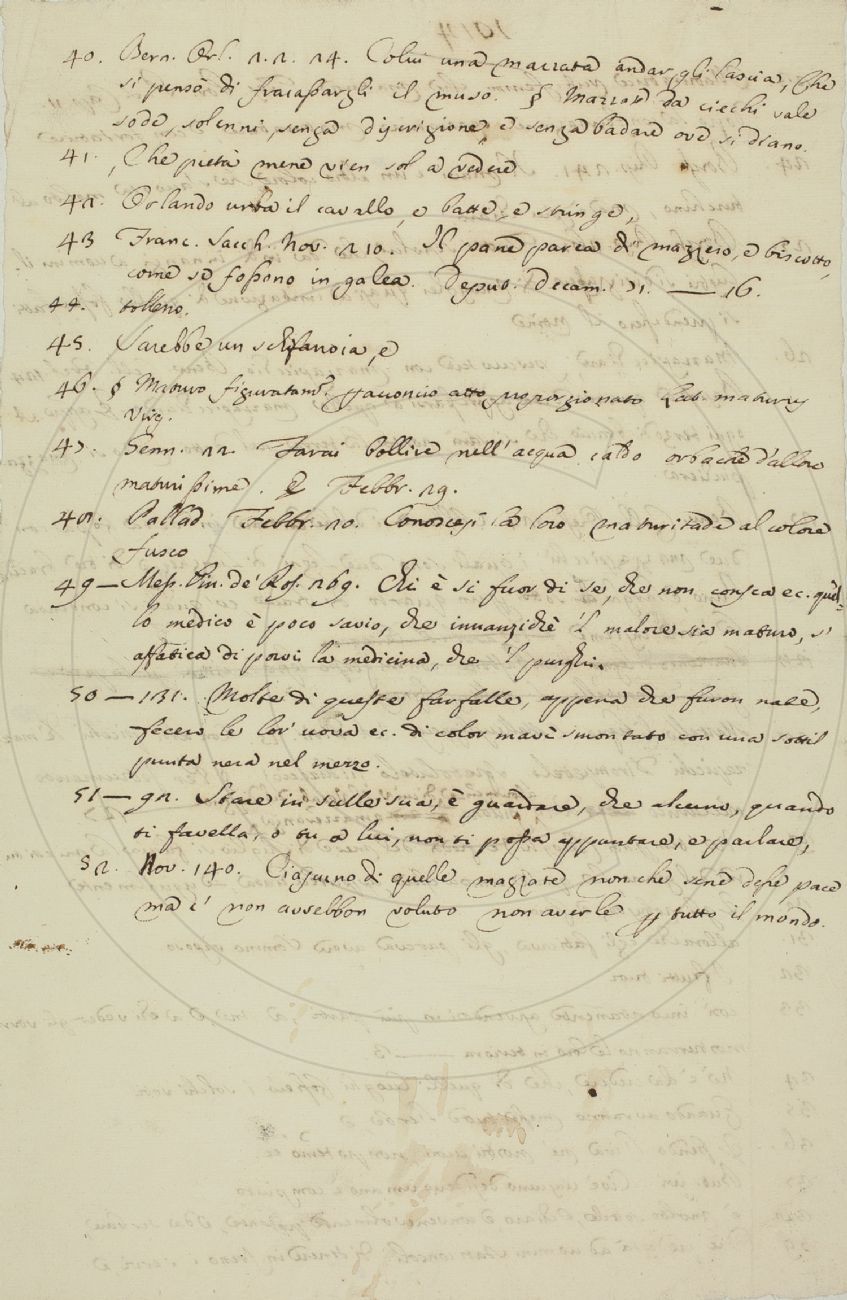 40. Bern. Orl. 2. 2. 24. Colui una mazzata andar gli lascia, Che
si pensò di fracaßargli il muso. § Mazzate da ciechi vale
sode, solenni, senza discrizione, e senza badare ove si diano.
41. , Che pietà mene vien sol a vedere
42. Orlando urta il cavallo, e batte, e stringe,
43 Franc. Sacch. Nov. 210. Il pane parea di mazzero, e biscotto,
come se foßono in galea. Deput. Decam. 21. — 16.
44. tolleno.
45. Sarebbe un schifanoia, e
46. § Maturo figuratam. acconcio atto proporzionato Lat. maturus
Virg.
47. Genn. 22 Farai bollire nell'acqua calda orbache d'alloro
maturißime. E Febbr. 29.
48. Pallad. Febbr. 20. Conoscesi la loro maturitade al colore
fusco
49 — Meß. Cin. de' Ros. 269. Chi è si fuor di se, che non consca ec. quel-
lo medico è poco savio, che innanzichè 'l malore sia maturo, s'
affatica di porvi la medicina, che 'l purghi.
50 — 131. Molte di queste farfalle, appena che furon nate,
fecero le lor' uova ec. di color mavì smontato con una sottil
punta nera nel mezzo.
51 — 92. Stare in sulle sua, è guardare, che alcuno, quando
ti favella, o tu a lui, non ti poßa appuntare, e parlare,
52. Nov. 140. Ciascuno di quelle mazzate non che sene deße pace
ma e' non avrebbon voluto non averle p tutto il mondo.